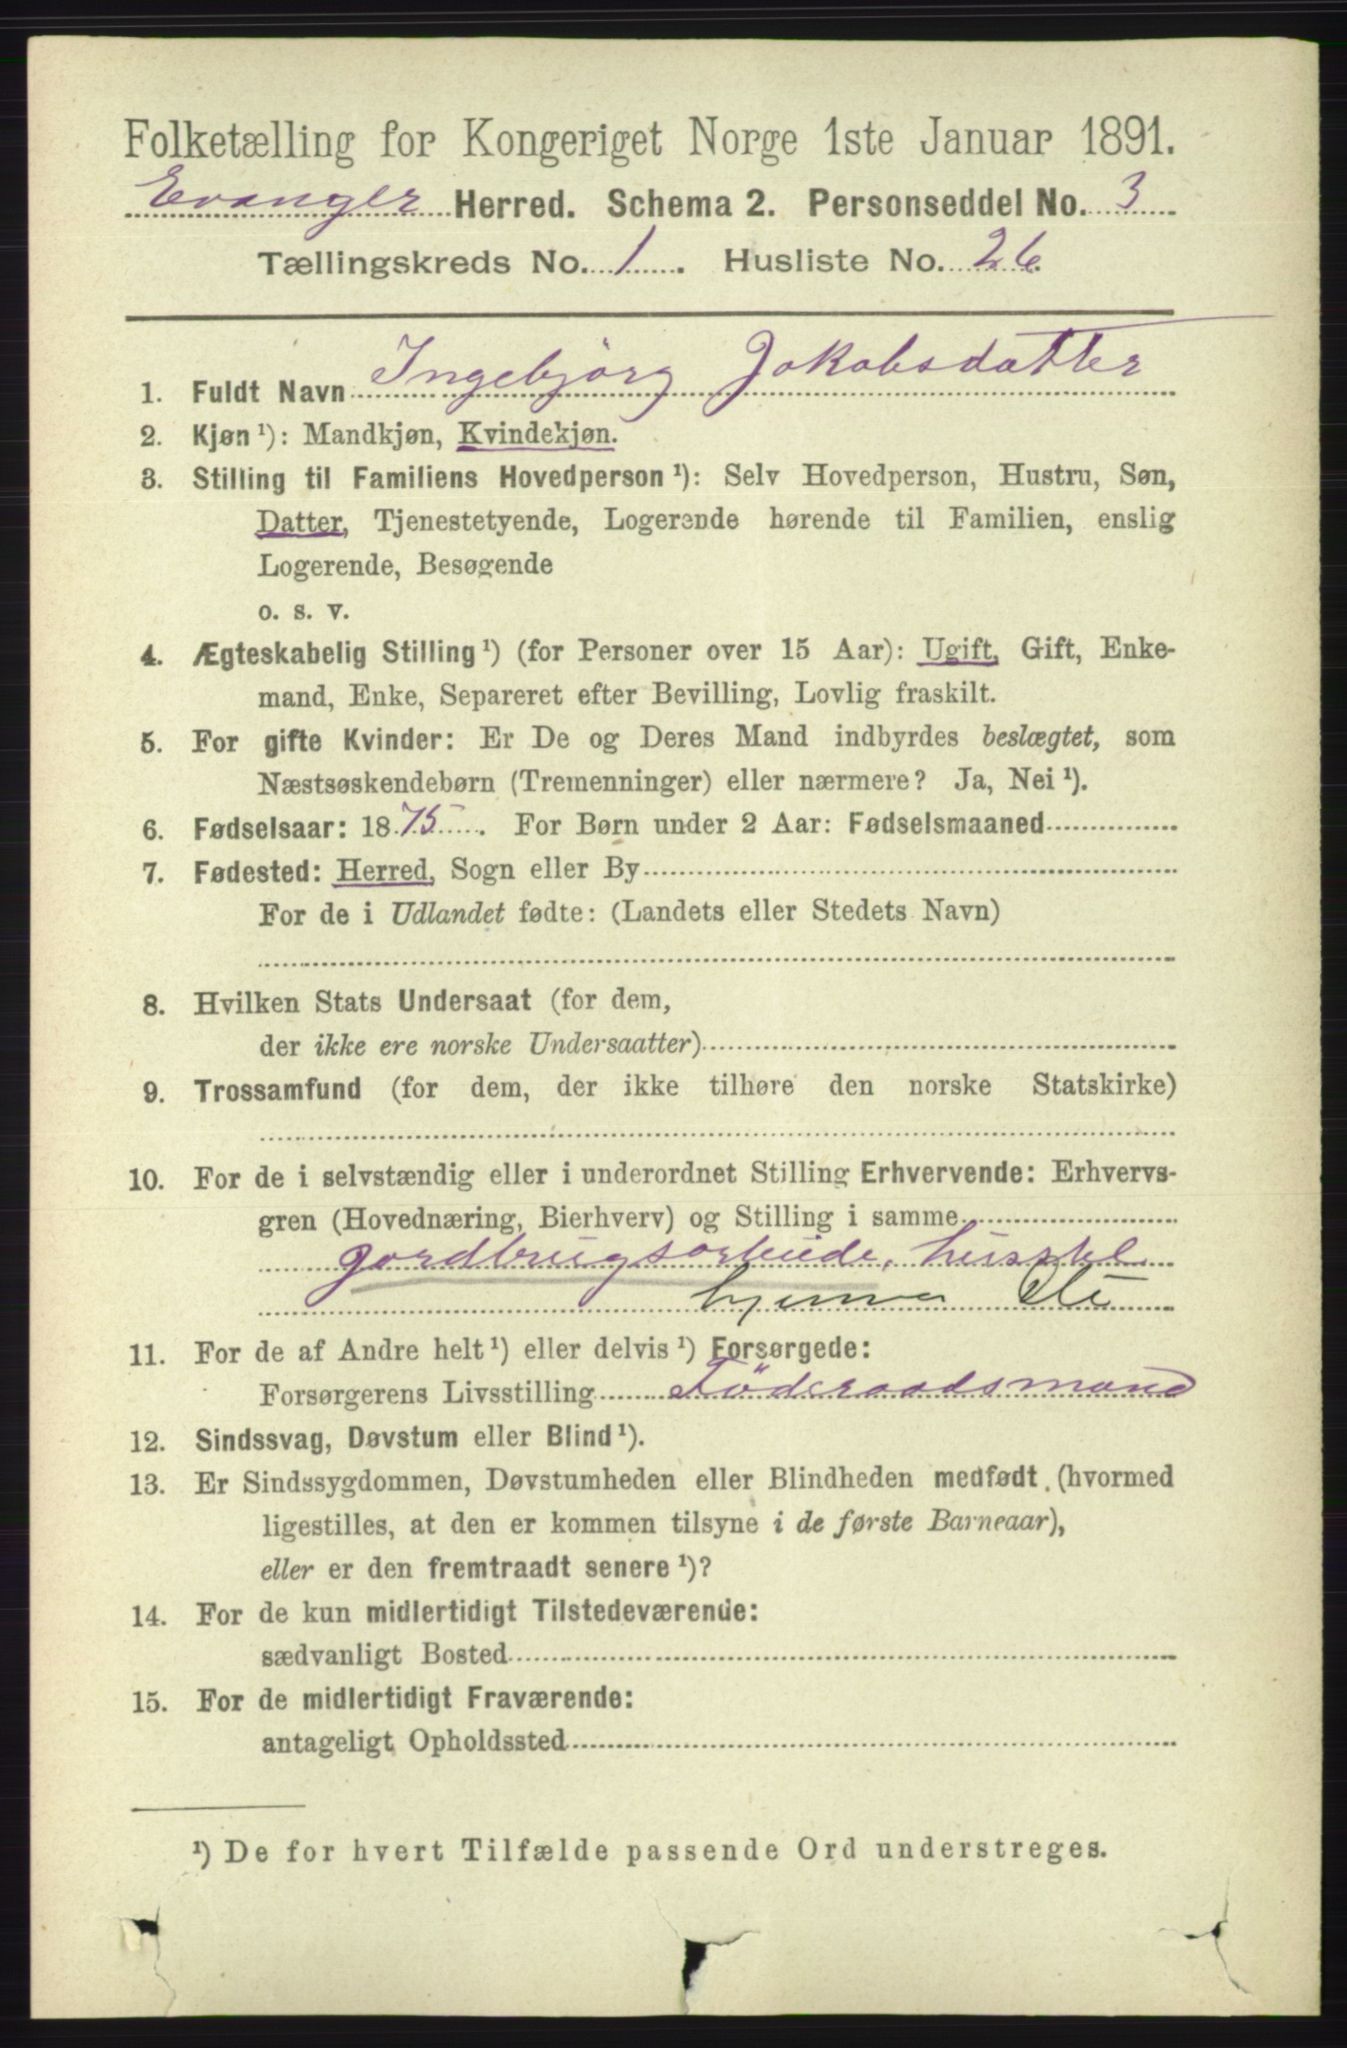 Folketælling for Kongeriget Norge 1ste Januar 1891.
Evanger Herred. Schema 2. Personseddel No. 3
Tællingskreds No. 1. Husliste No. 26.
1. Fuldt Navn Ingebjörg Jakobsdatter
2. Kjøn ¹): Mandkjøn, Kvindekjøn.
3. Stilling til Familiens Hovedperson ¹): Selv Hovedperson, Hustru, Søn,
Datter, Tjenestetyende, Logerende hørende til Familien, enslig
Logerende, Besøgende
o. s. v.
4. Ægteskabelig Stilling ¹) (for Personer over 15 Aar): Ugift, Gift, Enke-
mand, Enke, Separeret efter Bevilling, Lovlig fraskilt.
5. For gifte Kvinder: Er De og Deres Mand indbyrdes beslægtet, som
Næstsøskendebørn (Tremenninger) eller nærmere? Ja, Nei ¹).
6. Fødselsaar: 1875. For Børn under 2 Aar: Fødselsmaaned
7. Fødested: Herred, Sogn eller By
For de i Udlandet fødte: (Landets eller Stedets Navn)
8. Hvilken Stats Undersaat (for dem,
der ikke ere norske Undersaatter)
9. Trossamfund (for dem, der ikke tilhøre den norske Statskirke)
10. For de i selvstændig eller i underordnet Stilling Erhvervende: Erhvervs-
gren (Hovednæring, Bierhverv) og Stilling i samme
jordbrugsarbeide, husstel
hjemme
11. For de af Andre helt ¹) eller delvis ¹) Forsørgede:
Forsørgerens Livsstilling Föderaadsmand
12. Sindssvag, Døvstum eller Blind ¹).
13. Er Sindssygdommen, Døvstumheden eller Blindheden medfødt (hvormed
ligestilles, at den er kommen tilsyne i de første Barneaar),
eller er den fremtraadt senere ¹)?
14. For de kun midlertidigt Tilstedeværende:
sædvanligt Bosted
15. For de midlertidigt Fraværende:
antageligt Opholdssted
¹) De for hvert Tilfælde passende Ord understreges.